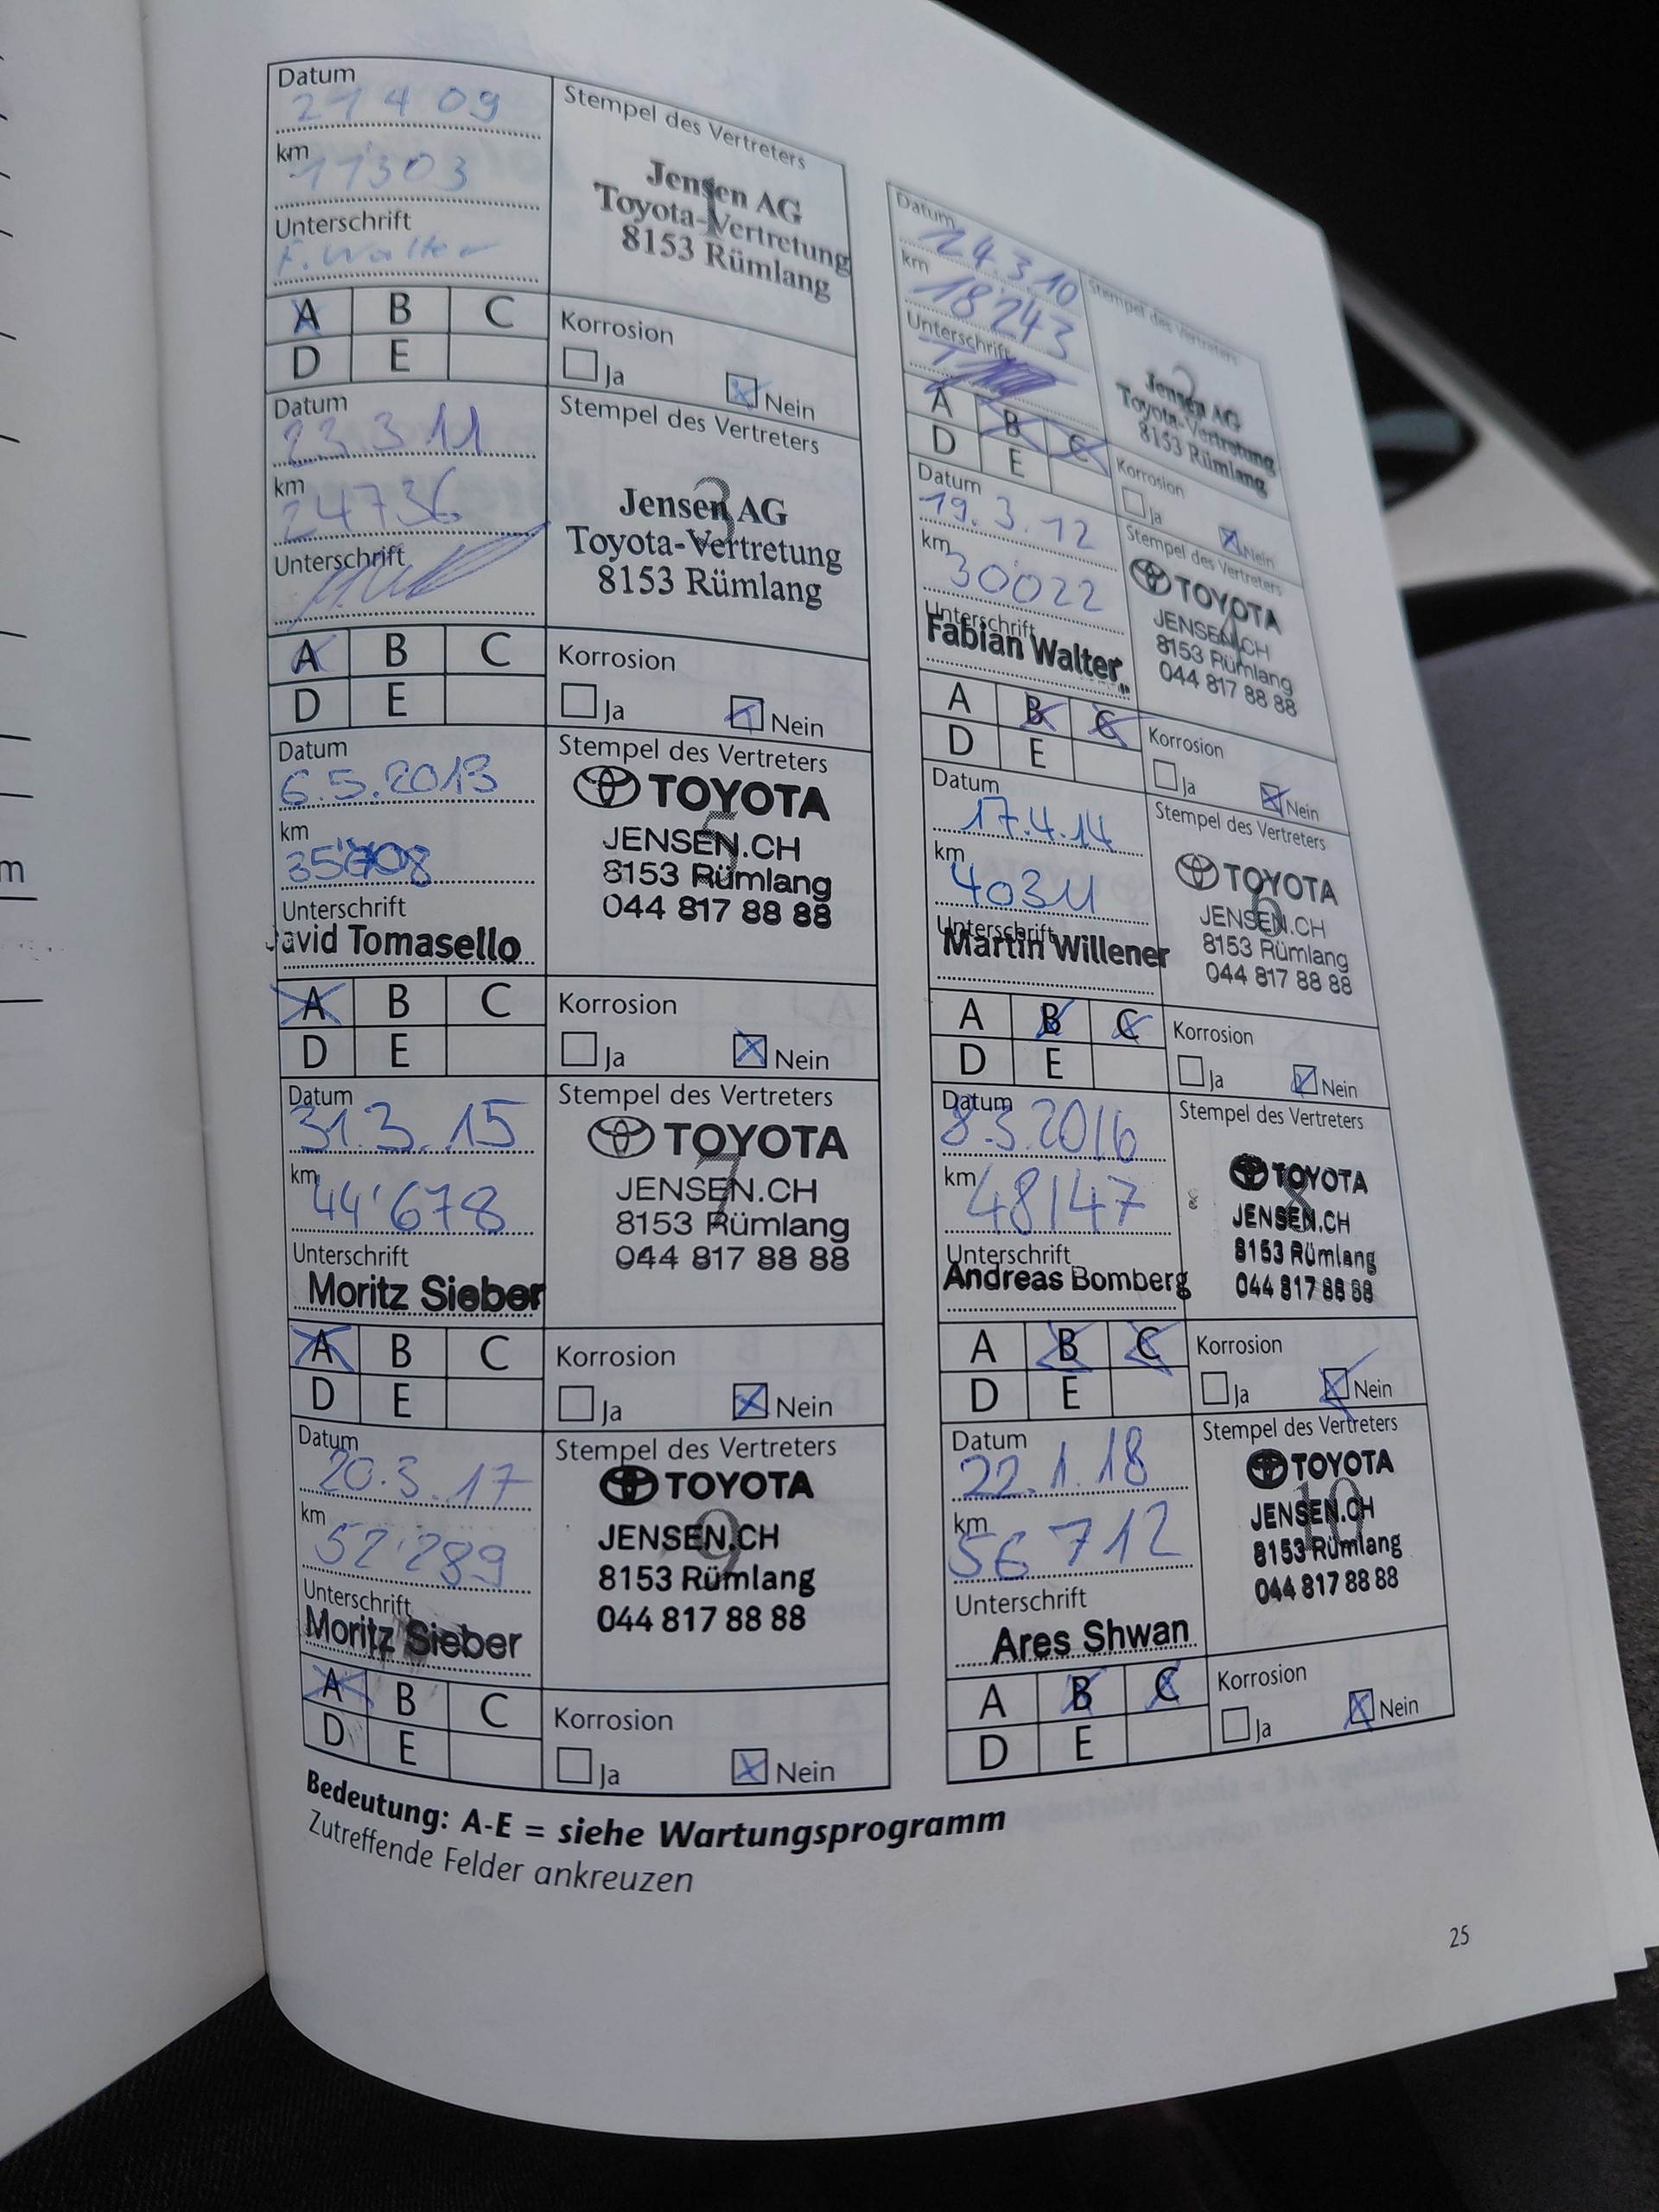 Datum
21 4 09
km
11303
Unterschrift
F. Walter
Stempel des Vertreters
1
Jensen AG
Toyota-Vertretung
8153 Rümlang
A B C
D E
Korrosion
Ja Nein
Datum
24.3.10
km
18'243
Unterschrift
Stempel des Vertreters
2
Jensen AG
Toyota-Vertretung
8153 Rümlang
A B C
D E
Korrosion
Ja Nein
Datum
23.3.11
km
24736
Unterschrift
Stempel des Vertreters
3
Jensen AG
Toyota-Vertretung
8153 Rümlang
A B C
D E
Korrosion
Ja Nein
Datum
19.3.12
km
30022
Unterschrift
Fabian Walter
Stempel des Vertreters
4
TOYOTA
JENSEN.CH
8153 Rümlang
044 817 88 88
A B C
D E
Korrosion
Ja Nein
Datum
6.5.2013
km
Unterschrift
David Tomasello
Stempel des Vertreters
5
TOYOTA
JENSEN.CH
8153 Rümlang
044 817 88 88
A B C
D E
Korrosion
Ja Nein
Datum
17.4.14
km
Unterschrift
Martin Willener
Stempel des Vertreters
6
TOYOTA
JENSEN.CH
8153 Rümlang
044 817 88 88
A B C
D E
Korrosion
Ja Nein
Datum
31.3.15
km
44'678
Unterschrift
Moritz Sieber
Stempel des Vertreters
7
TOYOTA
JENSEN.CH
8153 Rümlang
044 817 88 88
A B C
D E
Korrosion
Ja Nein
Datum
8.3.2016
km
48147
Unterschrift
Andreas Bomberg
Stempel des Vertreters
8
TOYOTA
JENSEN.CH
8153 Rümlang
044 817 88 88
A B C
D E
Korrosion
Ja Nein
Datum
20.3.17
km
52'289
Unterschrift
Moritz Sieber
Stempel des Vertreters
9
TOYOTA
JENSEN.CH
8153 Rümlang
044 817 88 88
A B C
D E
Korrosion
Ja Nein
Datum
22.1.18
km
56 712
Unterschrift
Ares Shwan
Stempel des Vertreters
10
TOYOTA
JENSEN.CH
8153 Rümlang
044 817 88 88
A B C
D E
Korrosion
Ja Nein
Bedeutung: A-E = siehe Wartungsprogramm
Zutreffende Felder ankreuzen
25
m